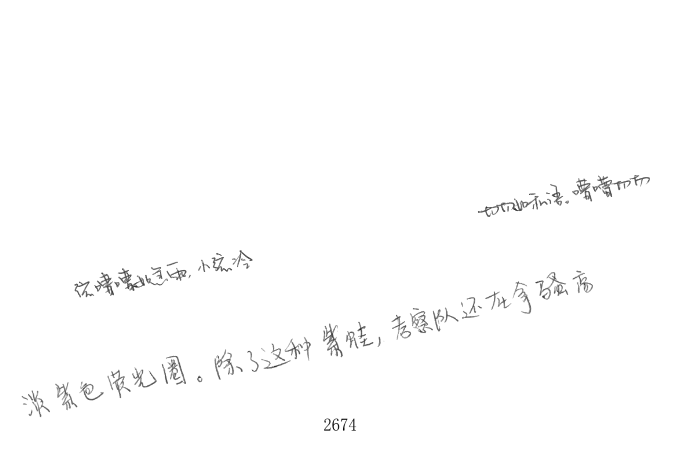 切切如私语。嘈嘈切切
弦嘈嘈如急雨,小弦冷
淡紫色荧光圈。除了这种紫蛙,考察队还在拿骚高
2674